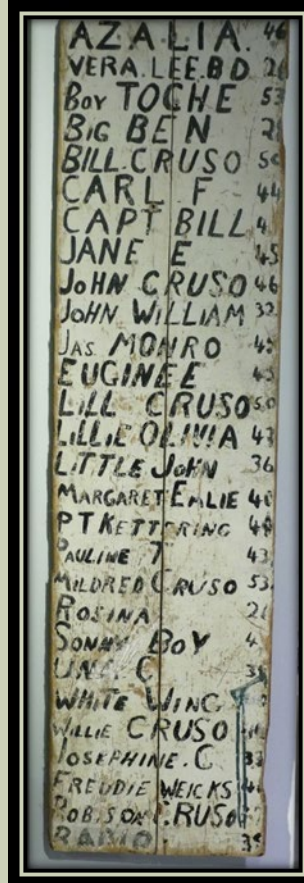 AZALIA. 46
VERA.LEE.BD
BOY TOCHE 53
BIG BEN
BILL.CRUSO
CARL F 44
CAPT BILL
JANE E 45
JOHN CRUSO 46
JOHN WILLIAM 32
JAS MONRO 45
EUGINEE 45
LILL CRUSO 50
LILLIE OLIVIA 43
LITTLE JOHN 36
MARGARET EMLIE
PT KETTERING
PAULINE T 43
MILDRED CRUSO 53
ROSINA
SONNY BOY
UNA C
WHITE WING
WILLIE CRUSO
JOSEPHINE.C
FREUDIE WEICKS
ROBISON CRUSO